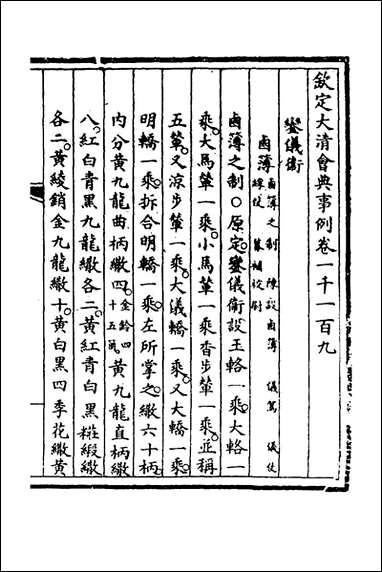 欽定大清會典事例卷一千一百九
鑾儀衛
鹵簿 鹵簿之制 陳設鹵簿 儀駕 儀仗
校尉
鹵簿之制○原定。鑾儀衛設玉輅一乘。大輅一
乘。大馬輦一乘。小馬輦一乘。香步輦一乘。並稱
五輦。又涼步輦一乘。大儀轎一乘。又大轎一乘。
明轎一乘。折合明轎一乘。左所掌之。繖六十柄。
內分黃九龍曲柄繖四。金鈴四十五箇。黃九龍直柄繖
八。紅白青黑九龍繖各二。黃紅青白黑糚緞繖
各二。黃綾銷金九龍繖十。黃白黑四季花繖黃